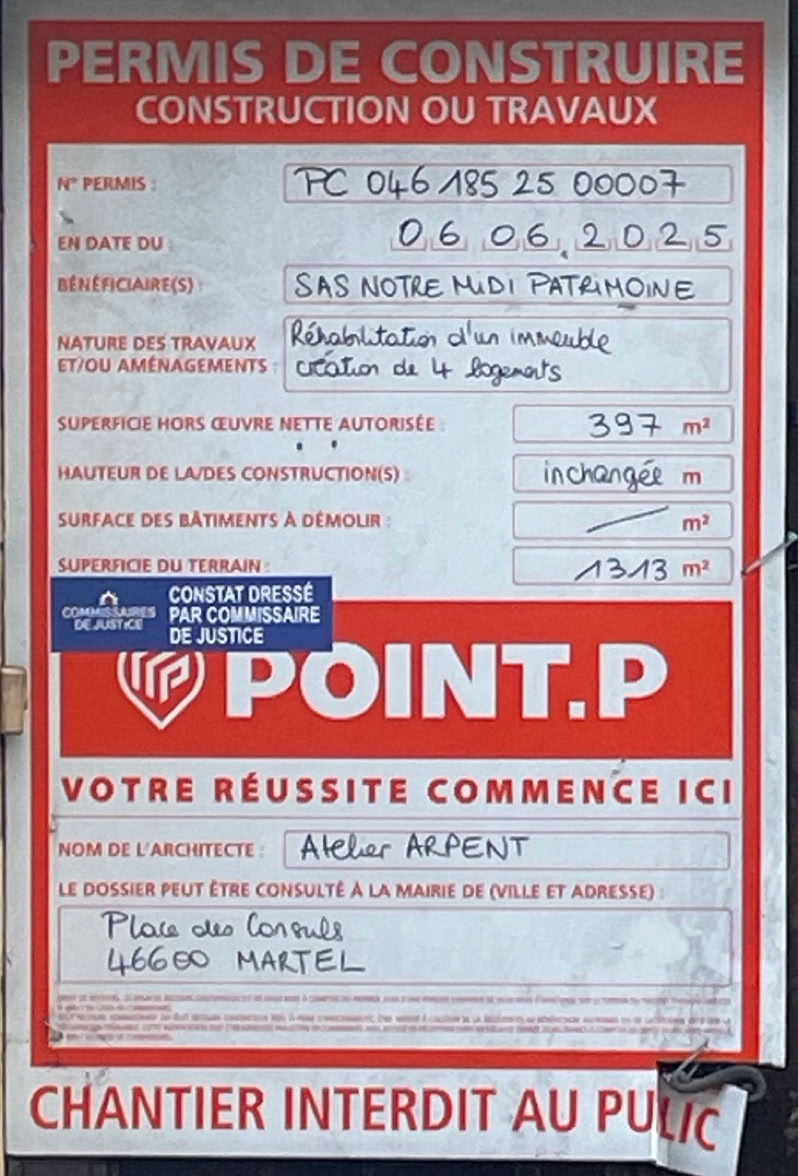 PERMIS DE CONSTRUIRE
CONSTRUCTION OU TRAVAUX
N° PERMIS : PC 046 185 25 00007
EN DATE DU : 06 06 2025
BÉNÉFICIAIRE(S) : SAS NOTRE MiDi PATRiMOINE
NATURE DES TRAVAUX ET/OU AMÉNAGEMENTS : Réhabilitation d'un immeuble
création de 4 logements
SUPERFICIE HORS ŒUVRE NETTE AUTORISÉE : 397 m²
HAUTEUR DE LA/DES CONSTRUCTION(S) : inchangée m
SURFACE DES BÂTIMENTS À DÉMOLIR : / m²
SUPERFICIE DU TERRAIN : 1313 m²
COMMISSAIRES
DE JUSTICE
CONSTAT DRESSÉ
PAR COMMISSAIRE
DE JUSTICE
POINT.P
VOTRE RÉUSSITE COMMENCE ICI
NOM DE L'ARCHITECTE : Atelier ARPENT
LE DOSSIER PEUT ÊTRE CONSULTÉ À LA MAIRIE DE (VILLE ET ADRESSE) :
Place des Consuls
46600 MARTEL
CHANTIER INTERDIT AU PULIC